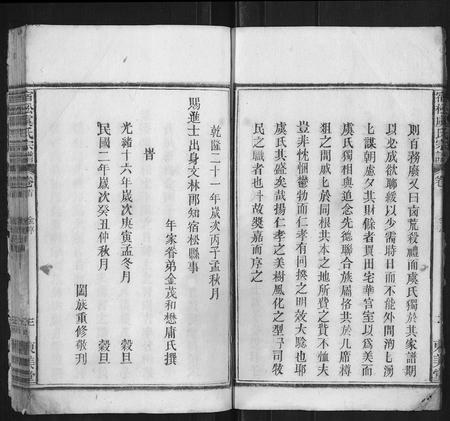 則百務廢又曰鹵荒殺禮而虞氏獨於其家譜期
以必成欲聯綴以少需時日而不能外間洶七洶
上謀朝虑夕其財餘者買田宅華宫室以爲美而
虞氏獨相與追念先德聯合族屬恪共於几席樽
俎之間戚七於同根共本之地所費之費不恤夫
豈非恍惚鬱勃而仁孝有同揆之明效大驗也耶
虞氏其盛矣哉揚仁孝之美樹風化之型予司牧
民之職者也丯故獎嘉而序之
乾隆二十一年歲次丙子孟秋月
賜進士出身文林郎知宿松縣事
年家眷弟金茂和懋庸氏撰
旹
光緒十六年歲次庚寅孟冬月 穀旦
民國二年歲次癸丑仲秋月 穀旦
闔族重修敬刋